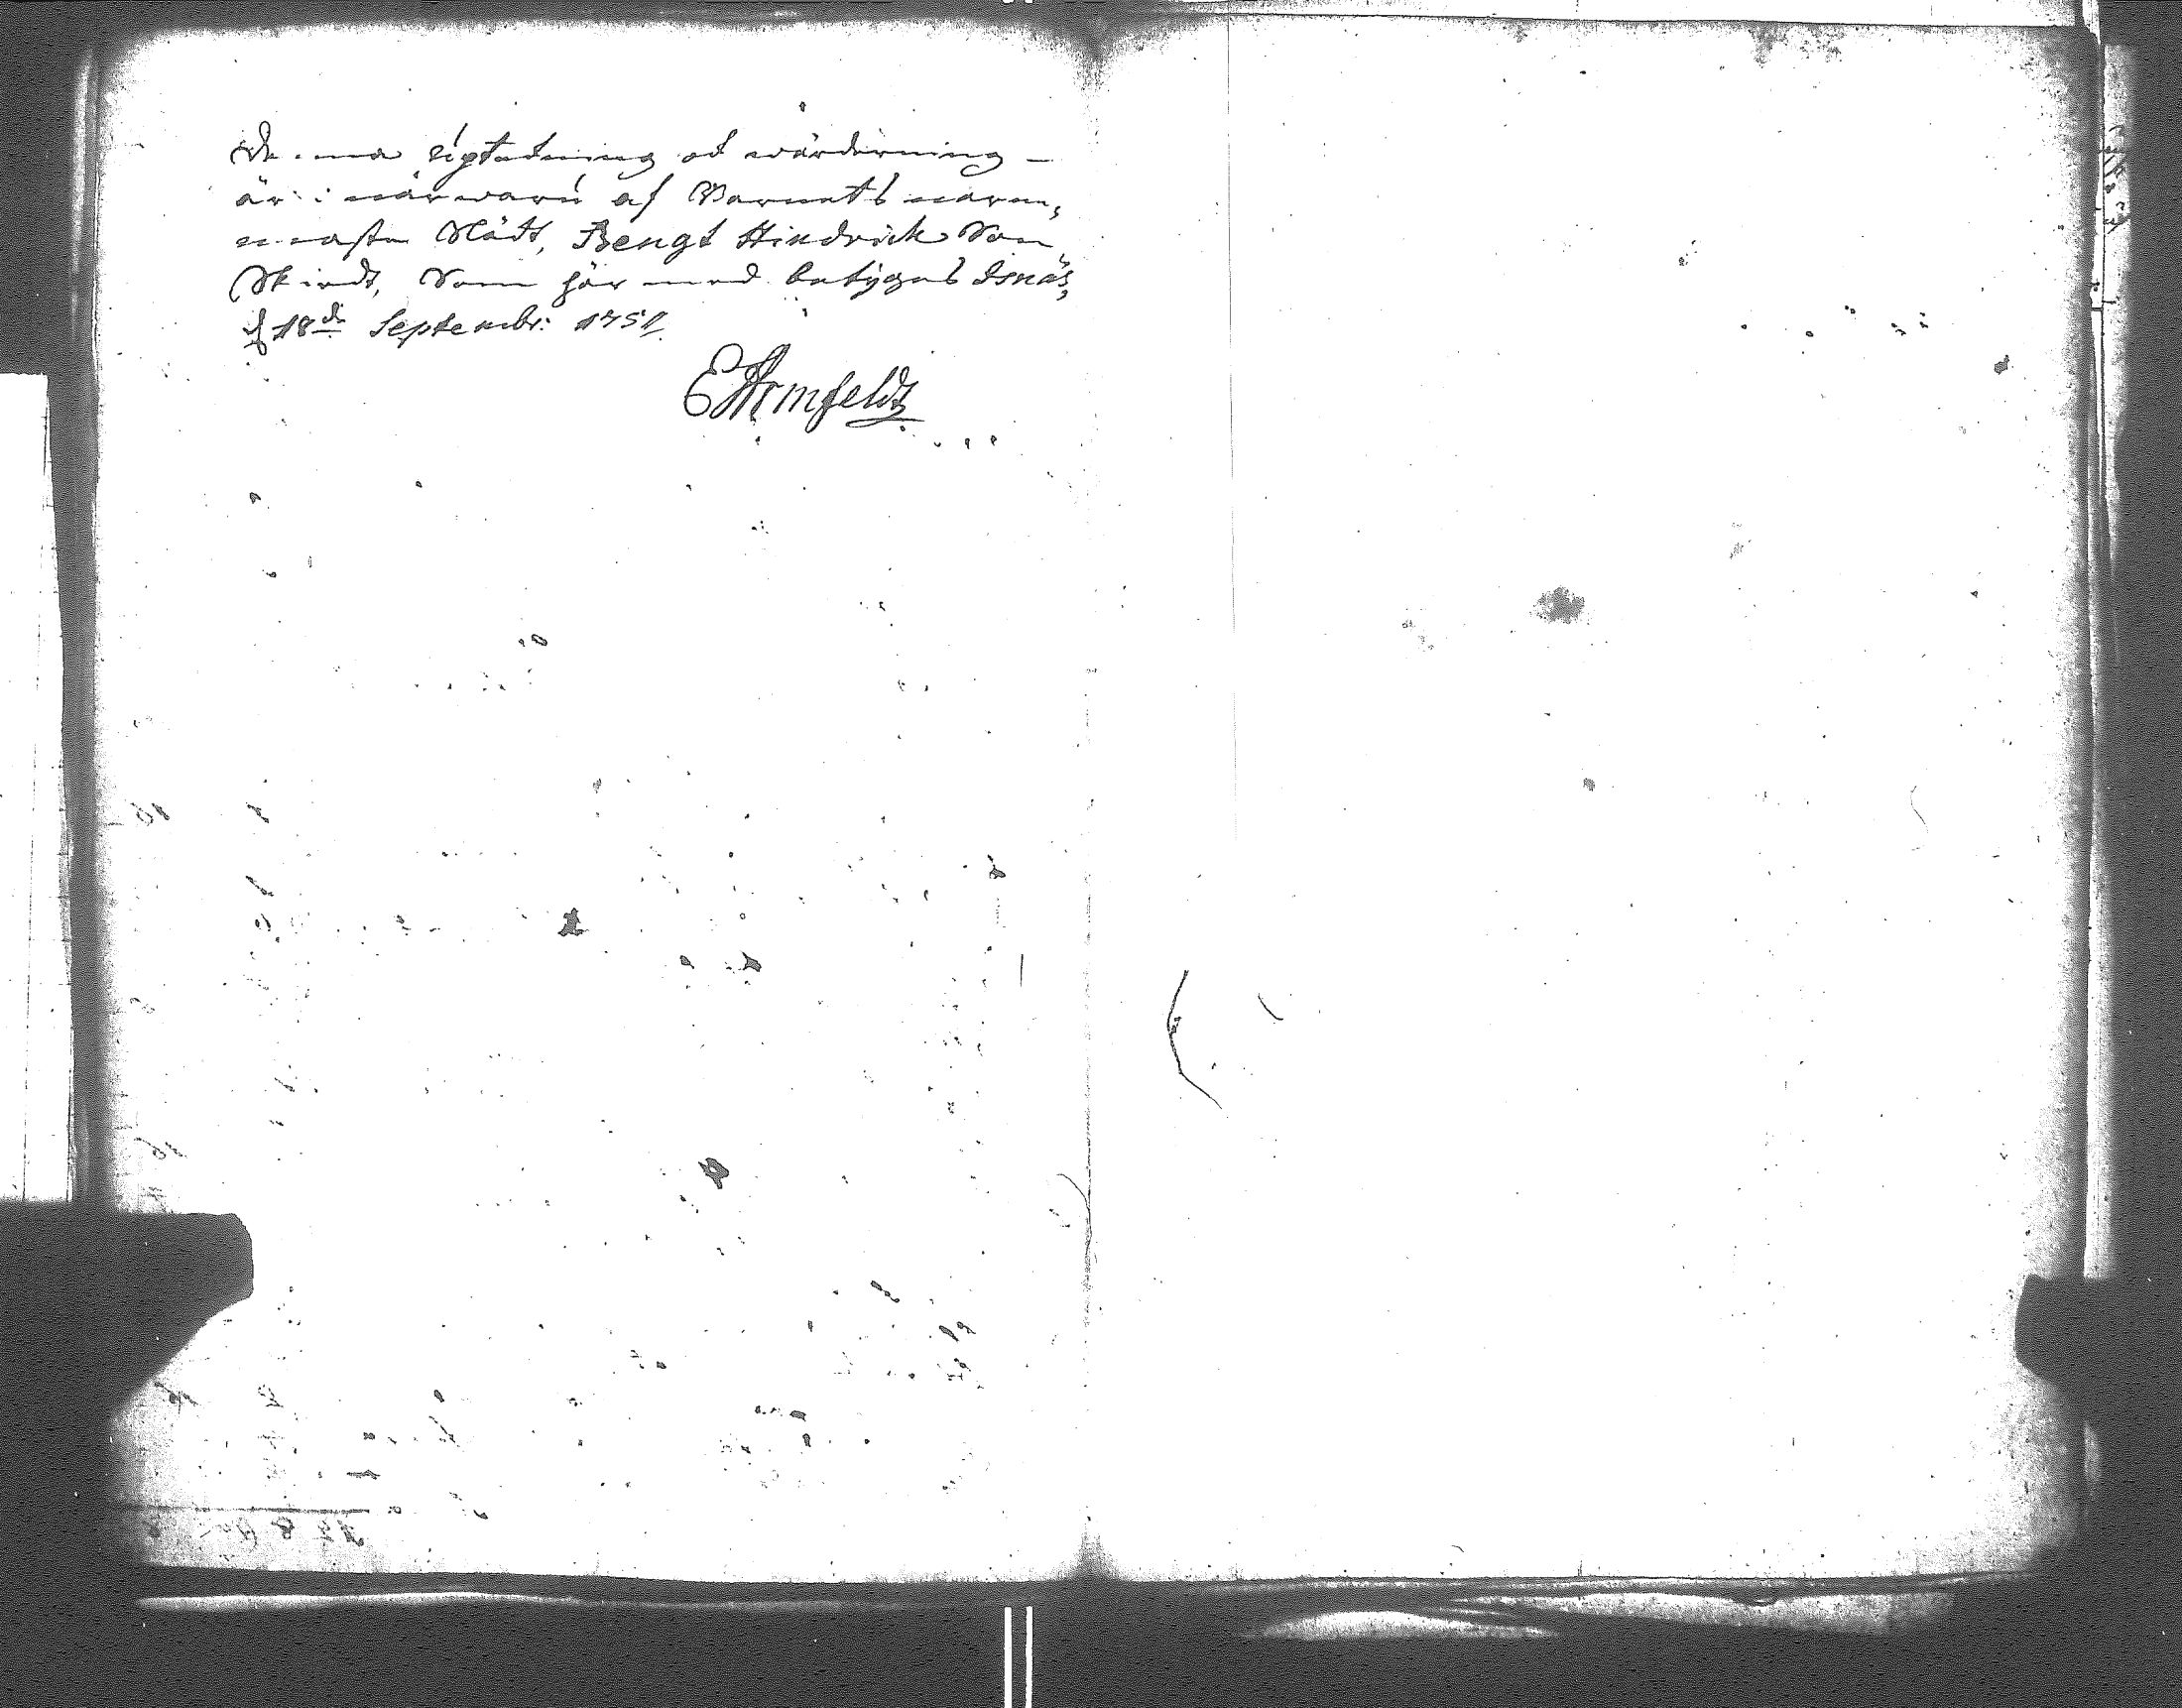 Denna upteckning ock wärdering
är i närwaru af Barnets närm,
masta Slägt, Bengt Hindrick Son
Skiedt, Som här med betygas Isnäs,
d 18de Septembr: 1751
E Armfeldt